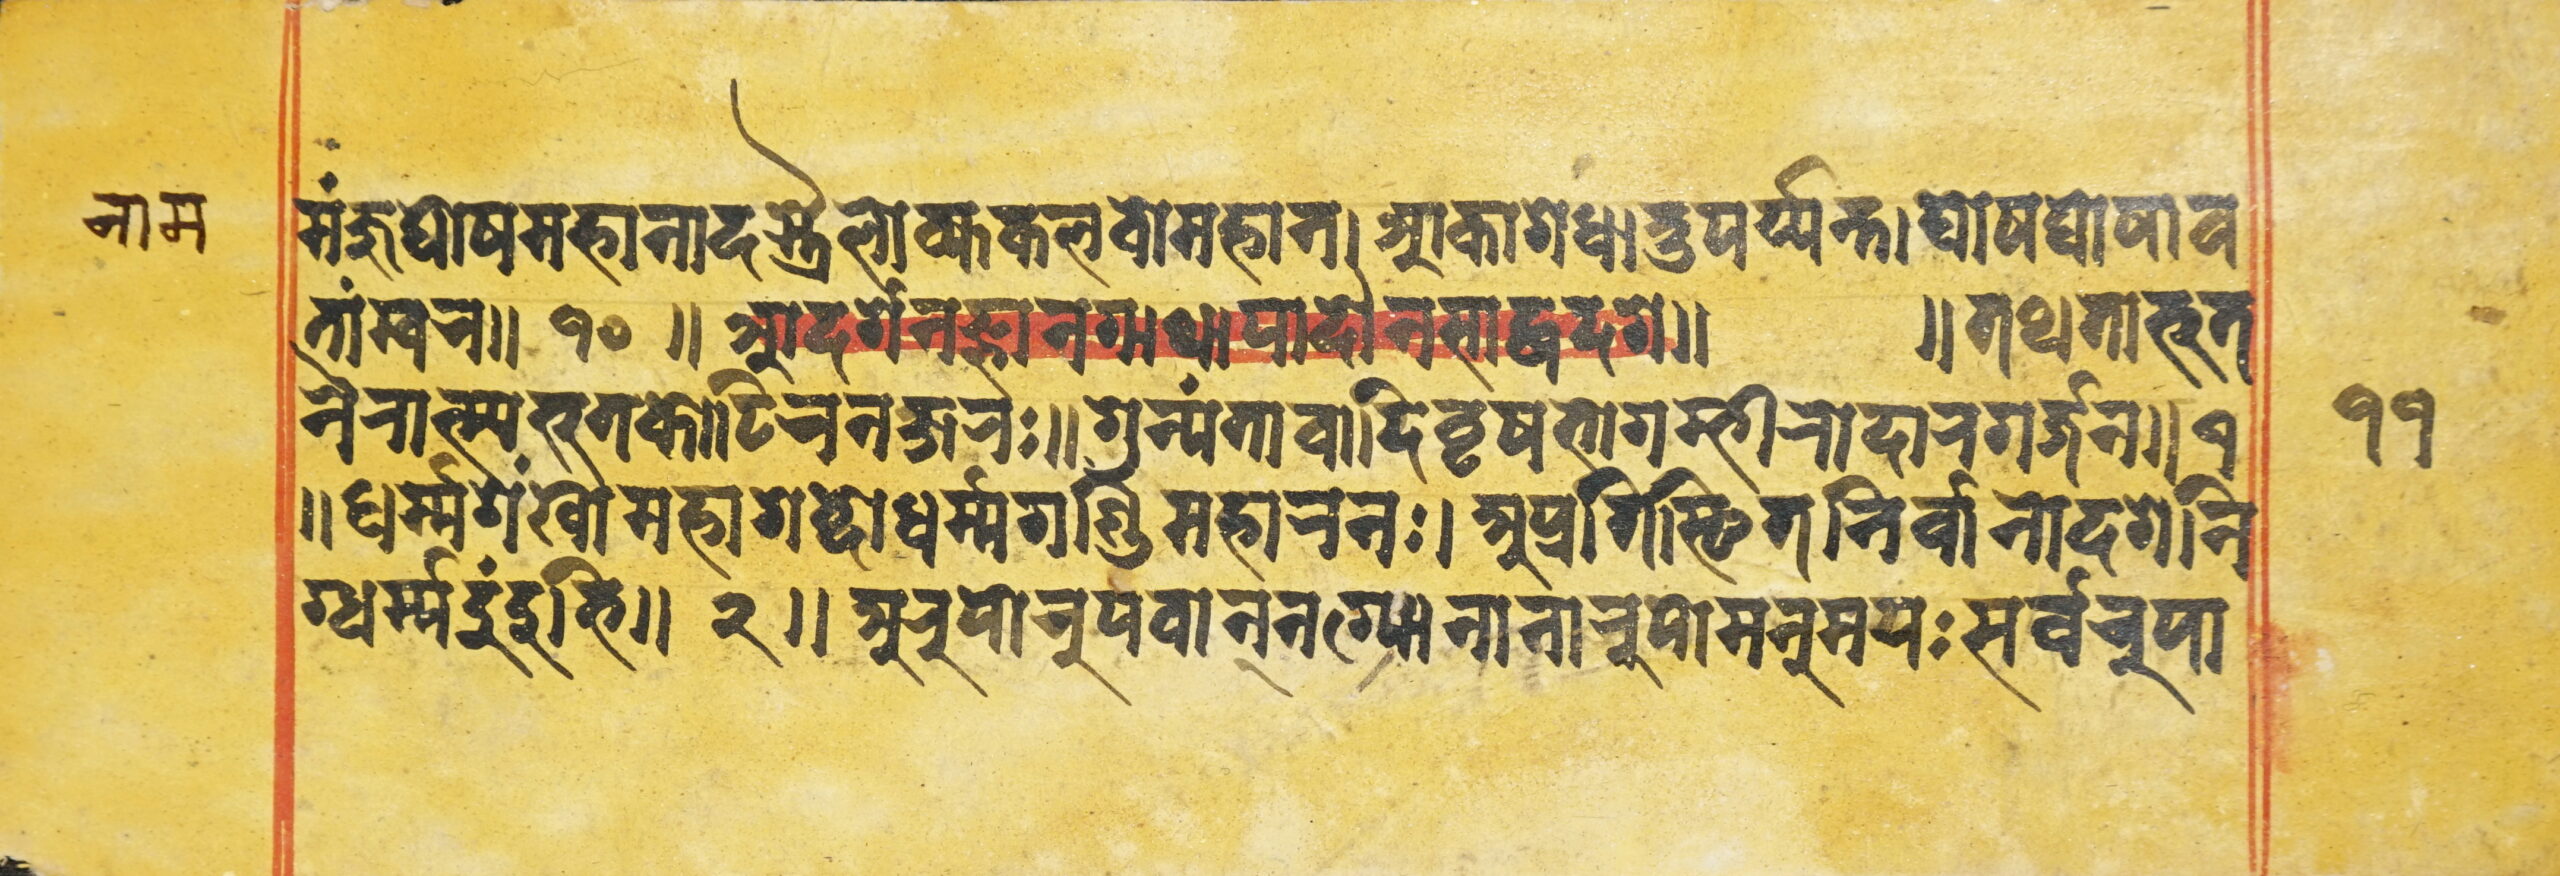 नाम
मंजुघोषमहानादस्त्रैलोक्यकलवोमहान। आकाशधातुपर्य्यन्त। घोषघोषाव
तांम्वर॥ १० ॥ आदर्शनज्ञानगाथापादोनसाद्वदश॥ ॥ तथताभूत
नैरात्म्यभूतकोटिरनक्षरः॥ शुन्यंतावादिवृषभोगम्भीरोदारगर्ज्जन॥ १
॥ धर्म्मशंखोमहाशब्दोधर्म्मगण्डिमहारनः। अप्रतिस्थितनिर्वानोदशनि
ग्धर्म्मदुंदुभि॥ २ ॥ अरुपोरुपवान्नग्यानानारुपोमनुमयः सर्वरुपा
११